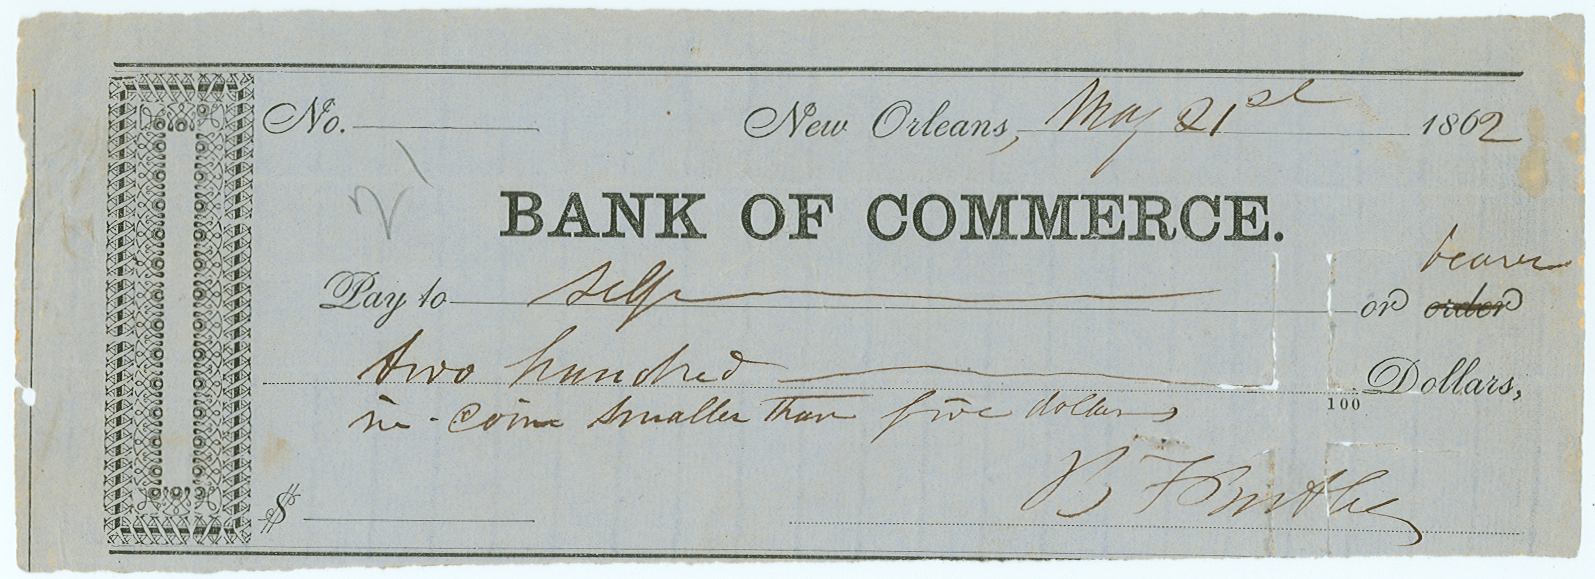 No. New Orleans, May 21st 1862
21
BANK OF COMMERCE.
bearer
Pay to self or order
two hundred Dollars,
100
in coin smaller than five dollars
B F Butler
$